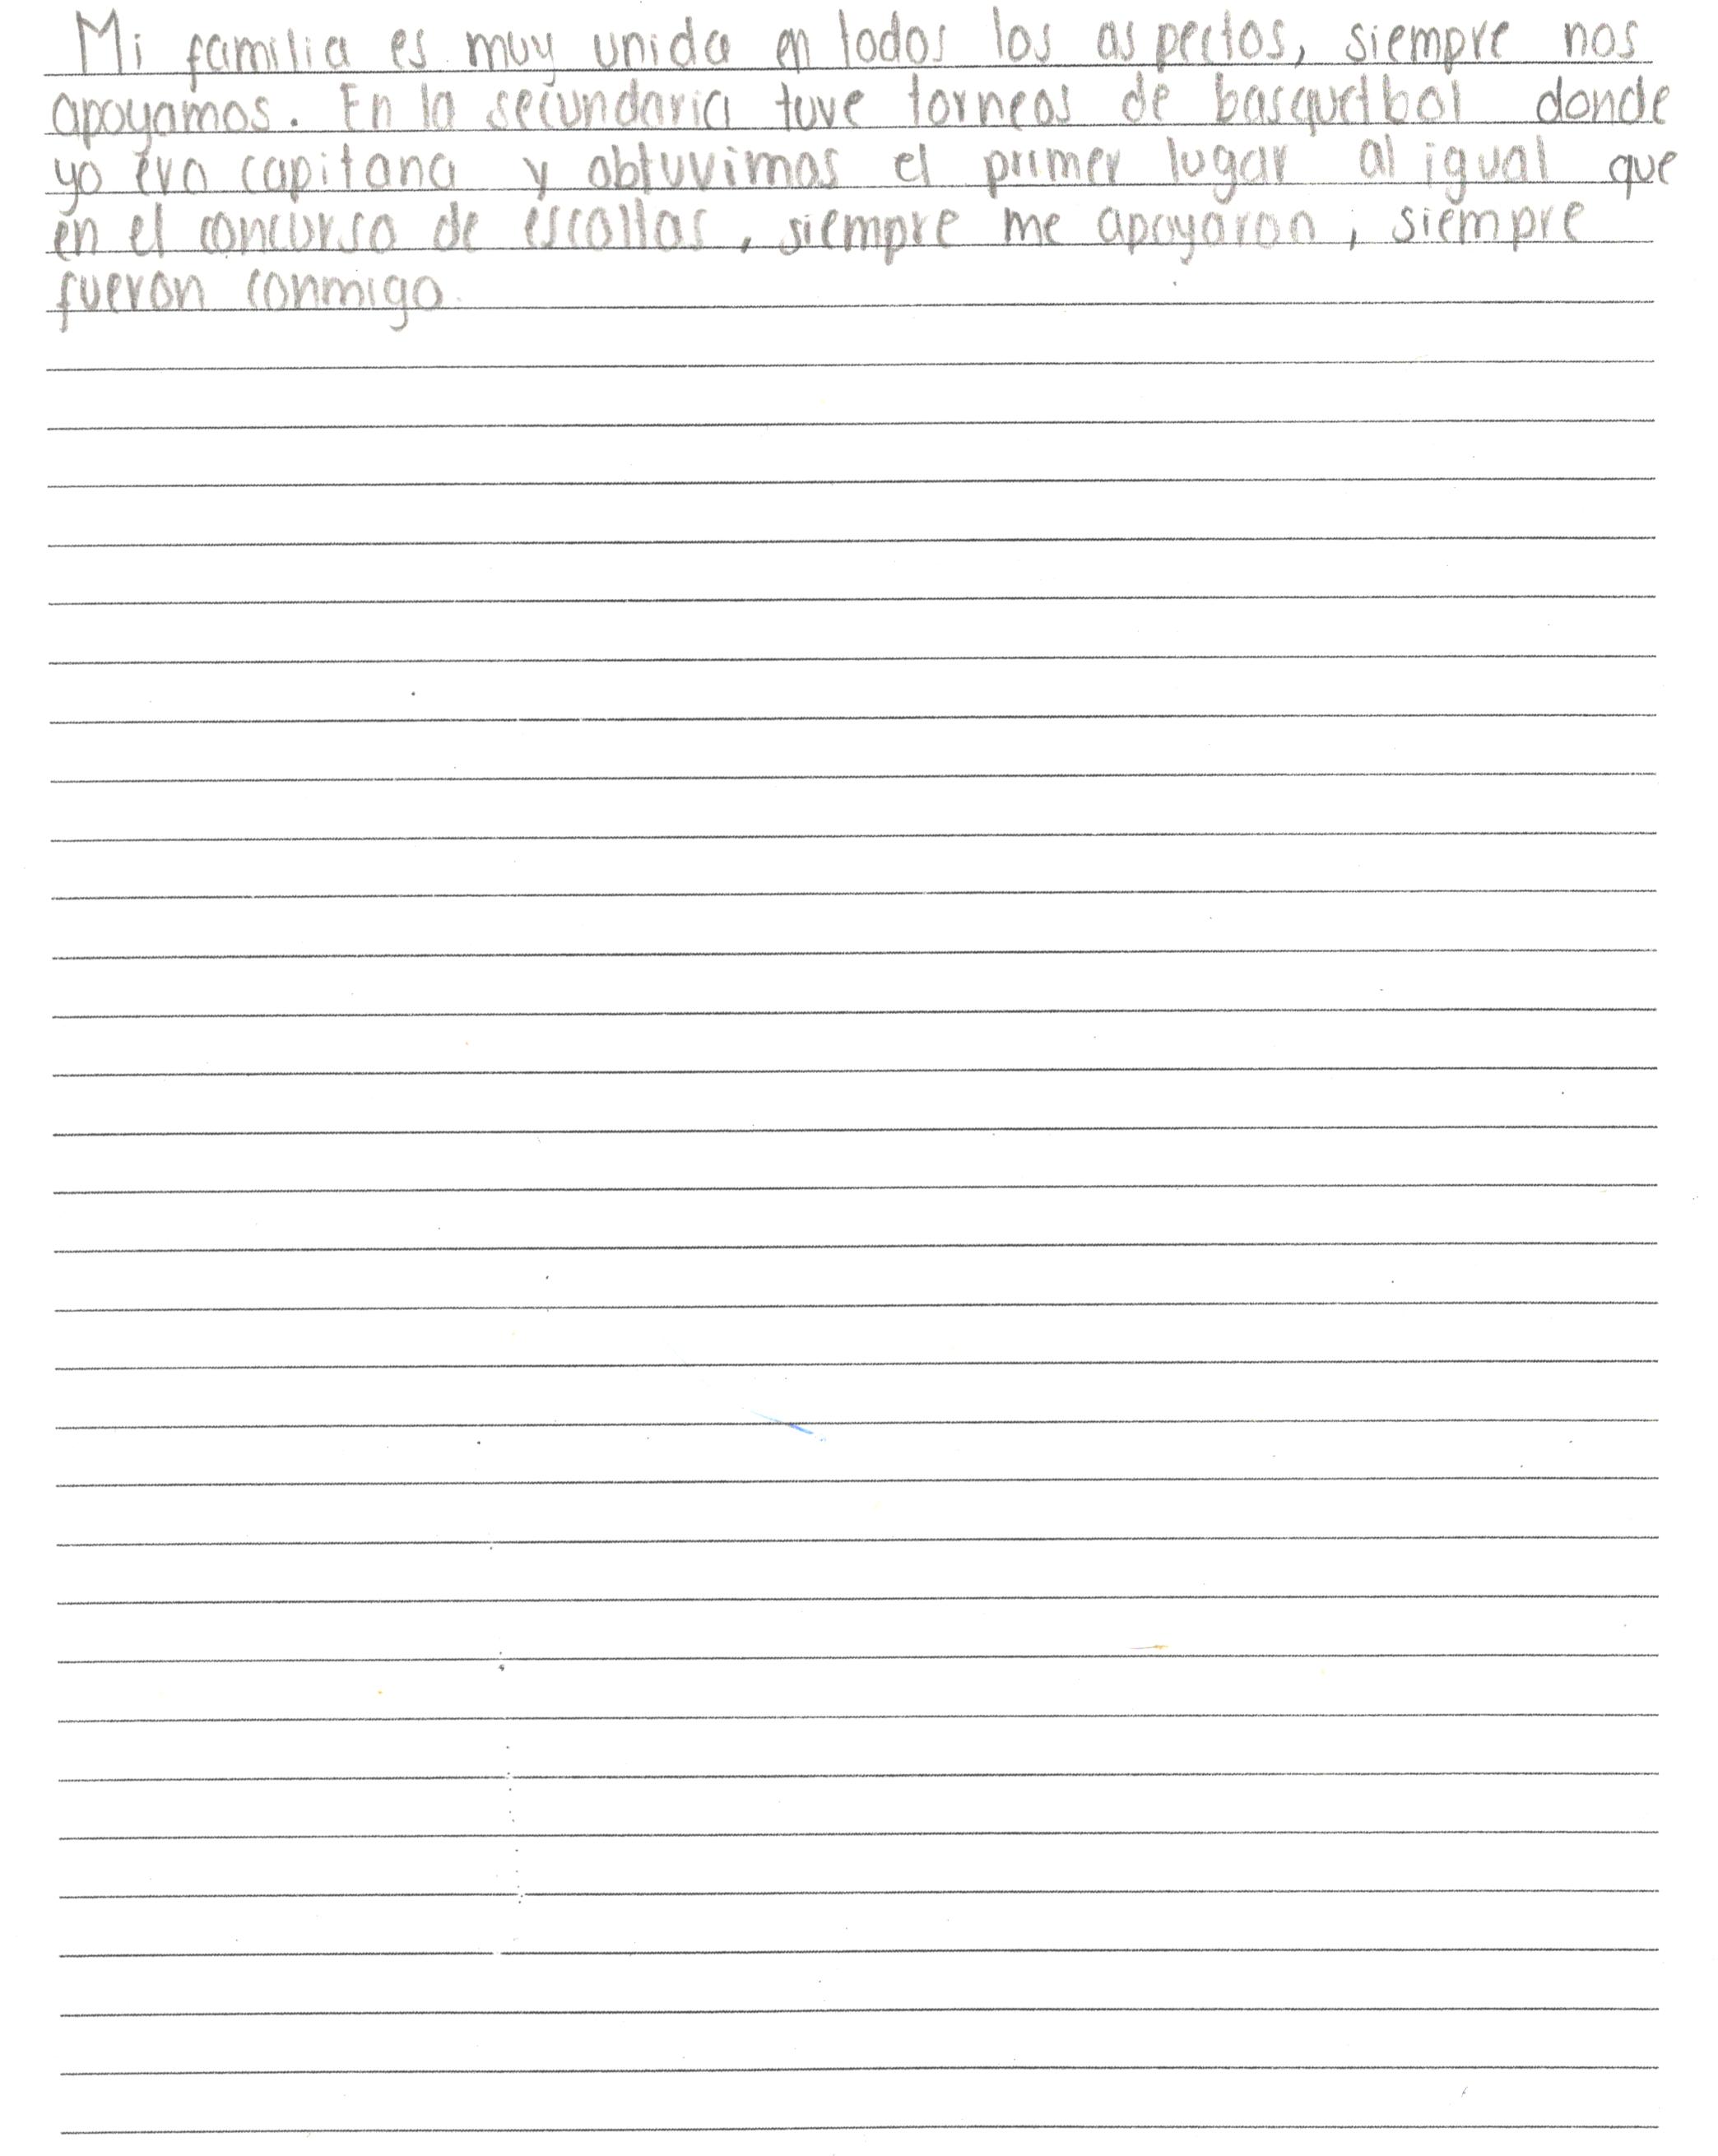 Mi familia es muy unida en todos los aspectos, siempre nos
apoyamos. En la secundaria tuve torneos de basquetbol donde
yo era capitana y obtuvimos el primer lugar al igual que
en el concurso de escoltas, siempre me apoyaron, siempre
fueron conmigo.